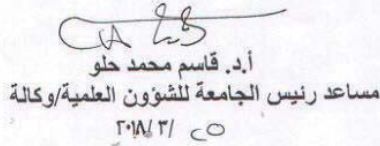 أ.د. قاسم محمد حلو
مساعد رئيس الجامعة للشؤون العلمية/وكالة
٢٥ /٣/ ٢٠١٨